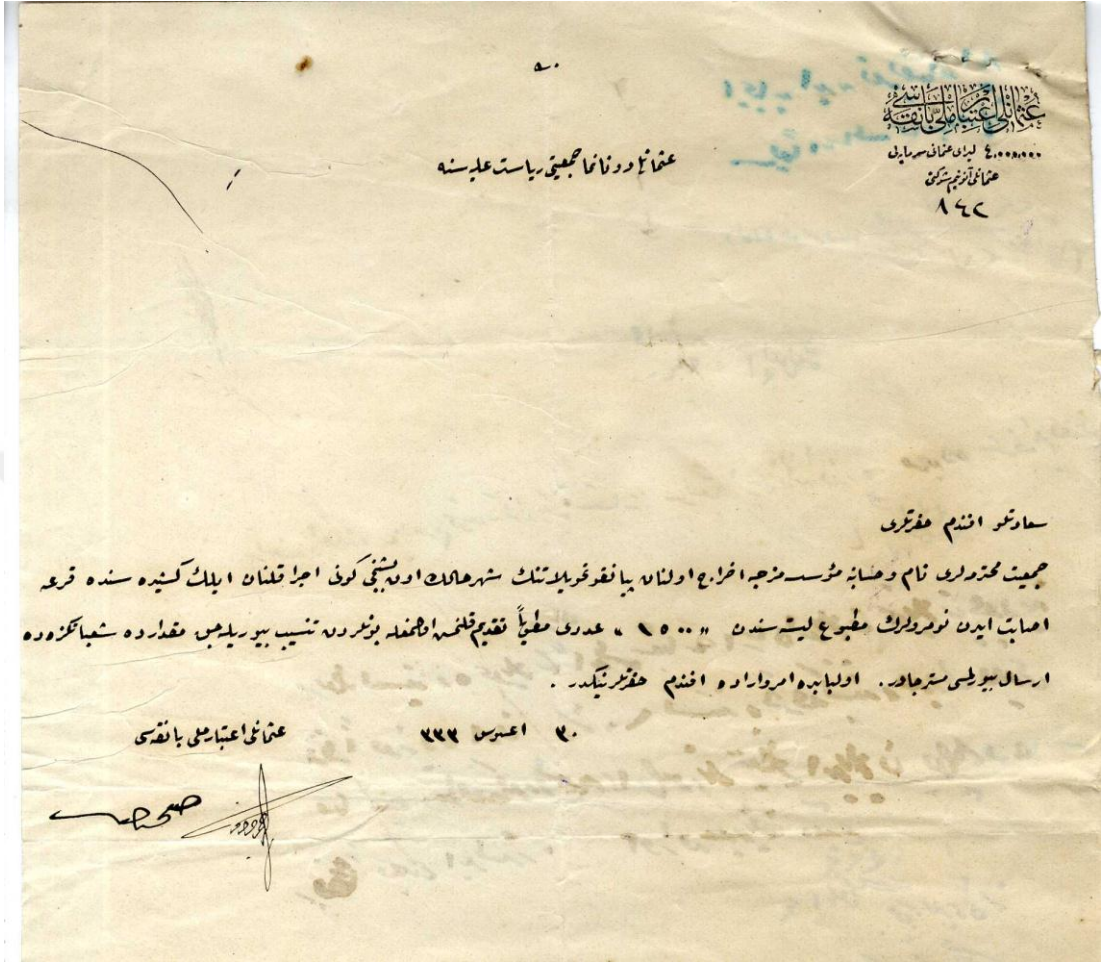 عثمانلی اعتبار ملی بانقه‌سی
٤,٠٠٠,٠٠٠ لیرای عثمانی سرمایه‌لی
عثمانلی آنونیم شرکتی
٨٤٢
عثمانلی دونانما جمعیتی ریاست علیه‌سنه
سعادتلو افندم حضرتلری
جمعیت محترمه‌لری نام و حسابنه مؤسسه‌مزجه اخراج اولنان پیانقو تحویلاتنك شهر حالك اون بشنجی كونی اجرا قلنان ایلك كشیده‌سنده قرعه
اصابت ایدن نومرولرك مطبوع لیسته‌سندن «١٥٠٠» عددی مطویاً تقدیم قلنمش اولمغله بونلردن تنسیب بیوریله‌جق مقدارده شعباتكزه ده
ارسال بیورلمسی مسترجادر. اولبابده امر و اراده افندم حضرتلرینكدر.
٣٠ اغستوس ٣٣٣
عثمانلی اعتبار ملی بانقه‌سی